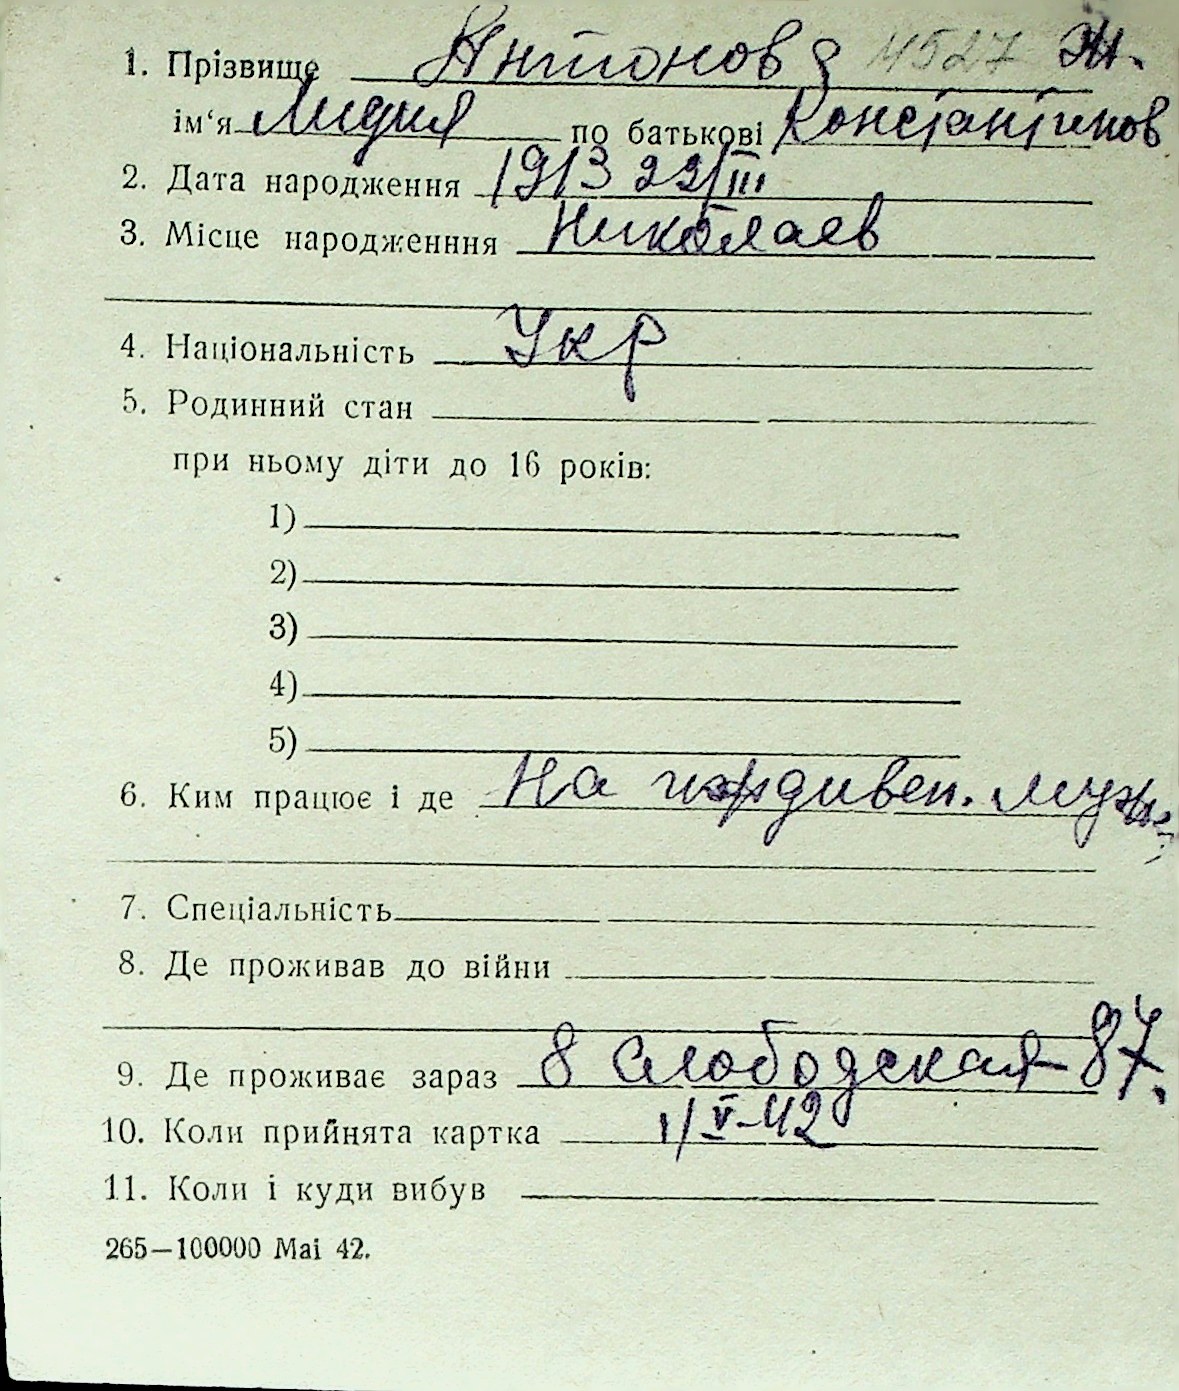 1. Прізвище Антонова 4527 Ж.
ім‘я Лидия по батькові Константинов
2. Дата народження 1913 22/III
3. Місце народженння Николаев
4. Національність Укр
5. Родинний стан
при ньому діти до 16 років:
1)
2)
3)
4)
5)
6. Ким працює і де На иждивен. мужа
7. Спеціальність
8. Де проживав до війни
9. Де проживає зараз 8 Слободская 87.
10. Коли прийнята картка 1/V-42
11. Коли і куди вибув
265—100000 Mai 42.